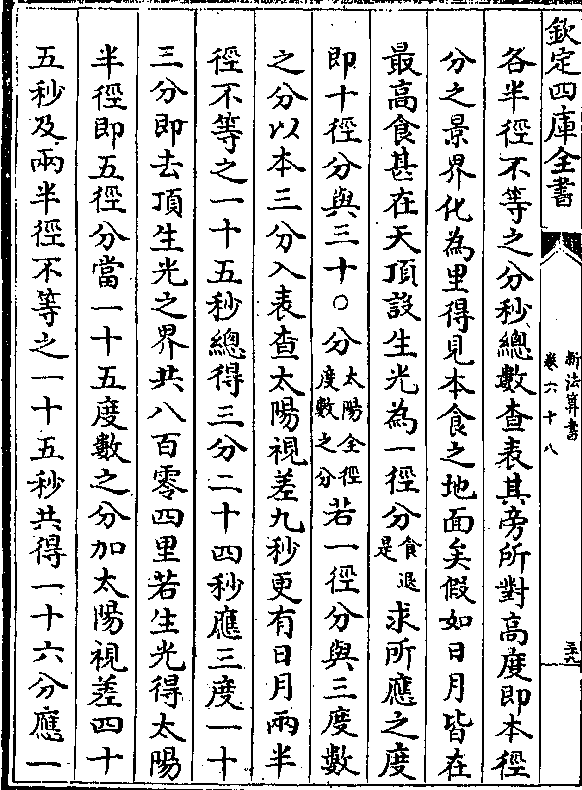 欽定四庫全書
新法算書
卷六十八
各半徑不等之分秒總數查表其旁所對高度即本徑
分之景界化為里得見本食之地面矣假如日月皆在
最高食甚在天頂設生光為一徑分食退是求所應之度
即十徑分與三十〇分太陽全徑度數之分若一徑分與三度數
之分以本三分入表查太陽視差九秒更有日月兩半
徑不等之一十五秒總得三分二十四秒應三度一十
三分即去頂生光之界共八百零四里若生光得太陽
半徑即五徑分當一十五度數之分加太陽視差四十
五秒及兩半徑不等之一十五秒共得一十六分應一